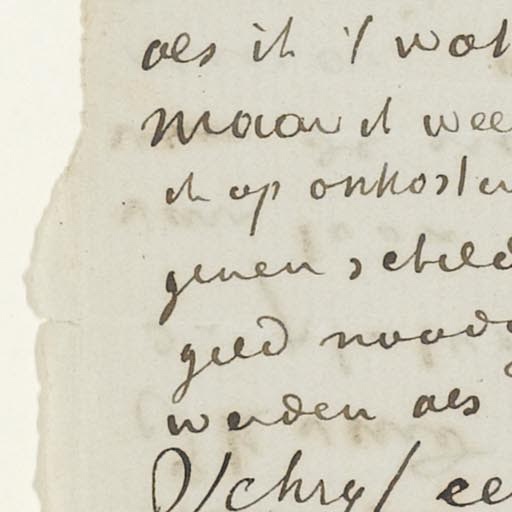 als ik 't wat
Maar ik wee
ik op onkosten
geven schild
geld noodi
werden als
Schryf ee